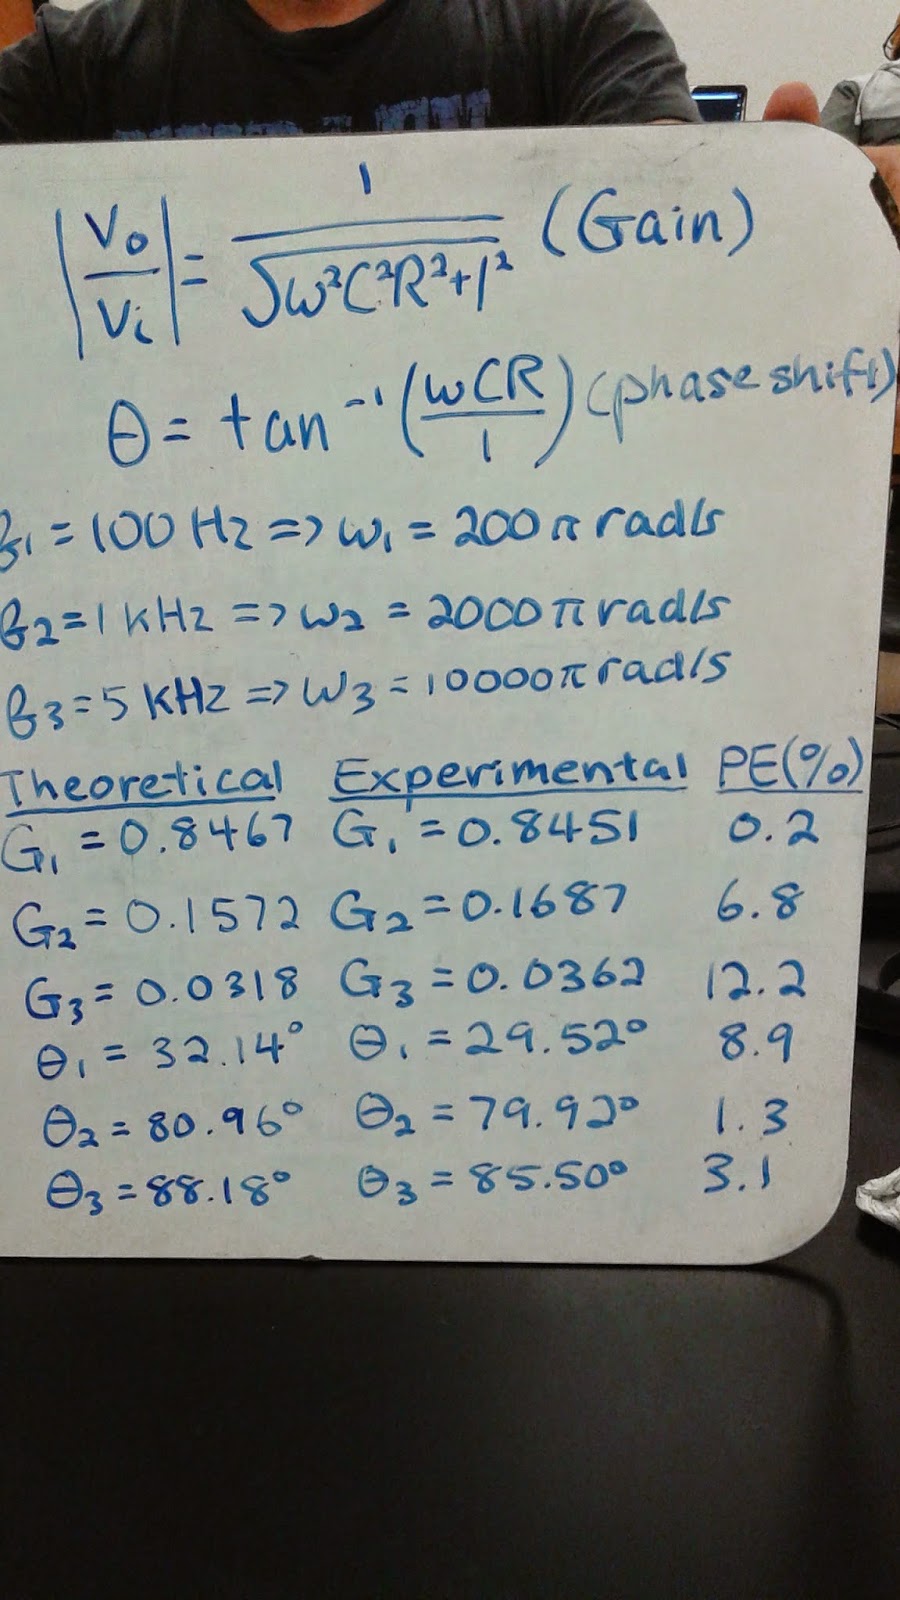 |Vo/Vi| = 1/√ω²C²R²+1² (Gain)
θ = tan⁻¹(ωCR/1) (phase shift)
f₁ = 100 Hz => ω₁ = 200π rad/s
f₂ = 1 kHz => ω₂ = 2000π rad/s
f₃ = 5 kHz => ω₃ = 10000π rad/s
Theoretical Experimental PE(%)
G₁ = 0.8467 G₁ = 0.8451 0.2
G₂ = 0.1572 G₂ = 0.1687 6.8
G₃ = 0.0318 G₃ = 0.0362 12.2
θ₁ = 32.14° θ₁ = 29.52° 8.9
θ₂ = 80.96° θ₂ = 79.92° 1.3
θ₃ = 88.18° θ₃ = 85.50° 3.1